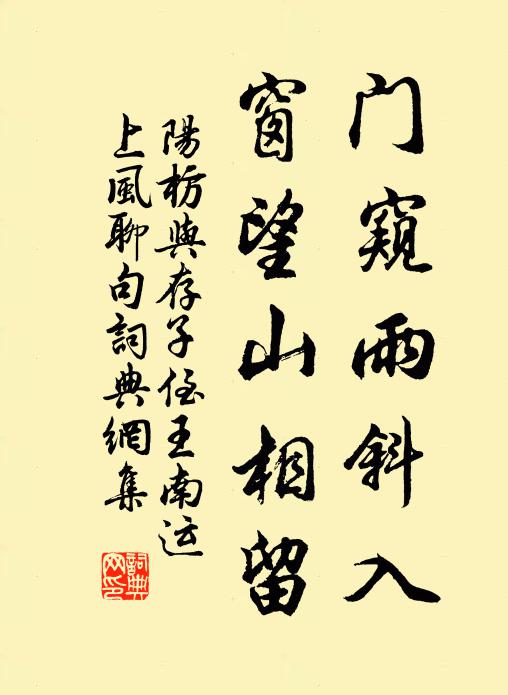 门窥雨斜入
窗望山相留
陽枋與存子侄王南运
上風聊句詞典網集
詞典网印